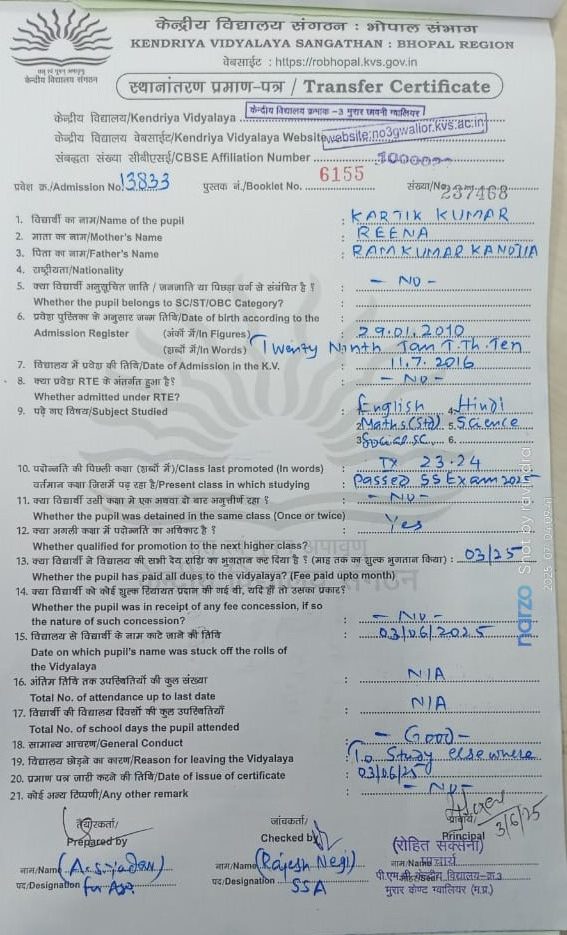 केन्द्रीय विद्यालय संगठन : भोपाल संभाग
KENDRIYA VIDYALAYA SANGATHAN : BHOPAL REGION
वेबसाईट : https://robhopal.kvs.gov.in
केन्द्रीय विद्यालय संगठन
स्थानांतरण प्रमाण-पत्र / Transfer Certificate
केन्द्रीय विद्यालय/Kendriya Vidyalaya केन्द्रीय विद्यालय क्रमांक -3 मुरार छावनी ग्वालियर
केन्द्रीय विद्यालय वेबसाईट/Kendriya Vidyalaya Website website:no3gwalior.kvs.ac.in
संबद्धता संख्या सीबीएसई/CBSE Affiliation Number
प्रवेश क्र./Admission No. 13833 पुस्तक नं./Booklet No. 6155 संख्या/No. 237468
1. विद्यार्थी का नाम/Name of the pupil : KARTIK KUMAR
2. माता का नाम/Mother's Name : REENA
3. पिता का नाम/Father's Name : RAM KUMAR KANOJIA
4. राष्ट्रीयता/Nationality :
5. क्या विद्यार्थी अनुसूचित जाति / जनजाति या पिछड़ा वर्ग से संबंधित है ? : - NO -
Whether the pupil belongs to SC/ST/OBC Category? :
6. प्रवेश पुस्तिका के अनुसार जन्म तिथि/Date of birth according to the :
Admission Register (अंकों में/In Figures) : 29.01.2010
(शब्दों में/In Words) Twenty Ninth Jan T.Th.Ten
7. विद्यालय में प्रवेश की तिथि/Date of Admission in the K.V. : 11.7.2016
8. क्या प्रवेश RTE के अंतर्गत हुआ है? : - NO -
Whether admitted under RTE?
9. पढ़े गए विषय/Subject Studied : English 4. Hindi
2 Maths (Std) 5. Science
3 Social SC. 6.
10. पदोन्नति की पिछली कक्षा (शब्दों में)/Class last promoted (In words) : IX 23.24
वर्तमान कक्षा जिसमें पढ़ रहा है/Present class in which studying : Passed SS Exam 2025
11. क्या विद्यार्थी उसी कक्षा में एक अथवा दो बार अनुत्तीर्ण रहा ? : - NO -
Whether the pupil was detained in the same class (Once or twice)
12. क्या अगली कक्षा में पदोन्नति का अधिकार है ? : Yes
Whether qualified for promotion to the next higher class?
13. क्या विद्यार्थी ने विद्यालय की सभी देय राशि का भुगतान कर दिया है ? (माह तक का शुल्क भुगतान किया) : 03/25
Whether the pupil has paid all dues to the vidyalaya? (Fee paid upto month)
14. क्या विद्यार्थी को कोई शुल्क रियायत प्रदान की गई थी, यदि हाँ तो उसका प्रकार?
Whether the pupil was in receipt of any fee concession, if so
the nature of such concession? : - NO -
15. विद्यालय से विद्यार्थी के नाम काटे जाने की तिथि : 03/06/2025
Date on which pupil's name was stuck off the rolls of
the Vidyalaya
16. अंतिम तिथि तक उपस्थितियों की कुल संख्या : N/A
Total No. of attendance up to last date
17. विद्यार्थी की विद्यालय दिवसों की कुल उपस्थितियाँ : N/A
Total No. of school days the pupil attended
18. सामान्य आचरण/General Conduct : - Good -
19. विद्यालय छोड़ने का कारण/Reason for leaving the Vidyalaya : To Study elsewhere
20. प्रमाण पत्र जारी करने की तिथि/Date of issue of certificate : 03/06/25
21. कोई अन्य टिप्पणी/Any other remark : - NO -
तैयारकर्ता/ जांचकर्ता/ प्राचार्य/
Prepared by Checked by Principal 3/6/25
(रोहित सक्सेना)
नाम/Name नाम/Name (Rajesh Negi) नाम/Name प्राचार्य
पद/Designation पद/Designation SSA पी.एम.श्री केन्द्रीय विद्यालय-क्र.3
मुरार केण्ट ग्वालियर (म.प्र.)
narzo
Shot by